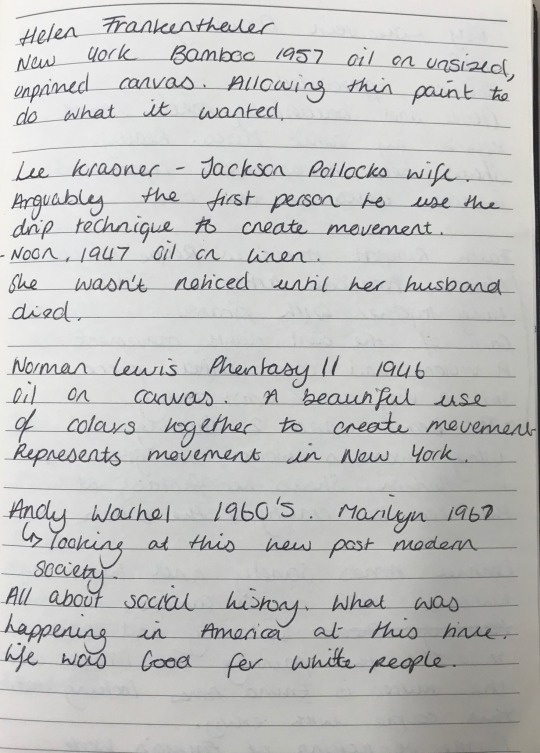 Helen Frankenthaler
New York Bamboo 1957 oil on unsized,
unprimed canvas. Allowing thin paint to
do what it wanted.
Lee Krasner - Jackson Pollocks wife.
Arguably the first person to use the
drip technique to create movement.
- Noon, 1947 oil on linen.
She wasn't noticed until her husband
died.
Norman Lewis Phantasy II 1946
oil on canvas. A beautiful use
of colours together to create movement
Represents movement in New York.
Andy Warhol 1960's. Marilyn 1967
↳ looking at this new post modern
society.
All about social history. What was
happening in America at this time.
life was Good for white people.